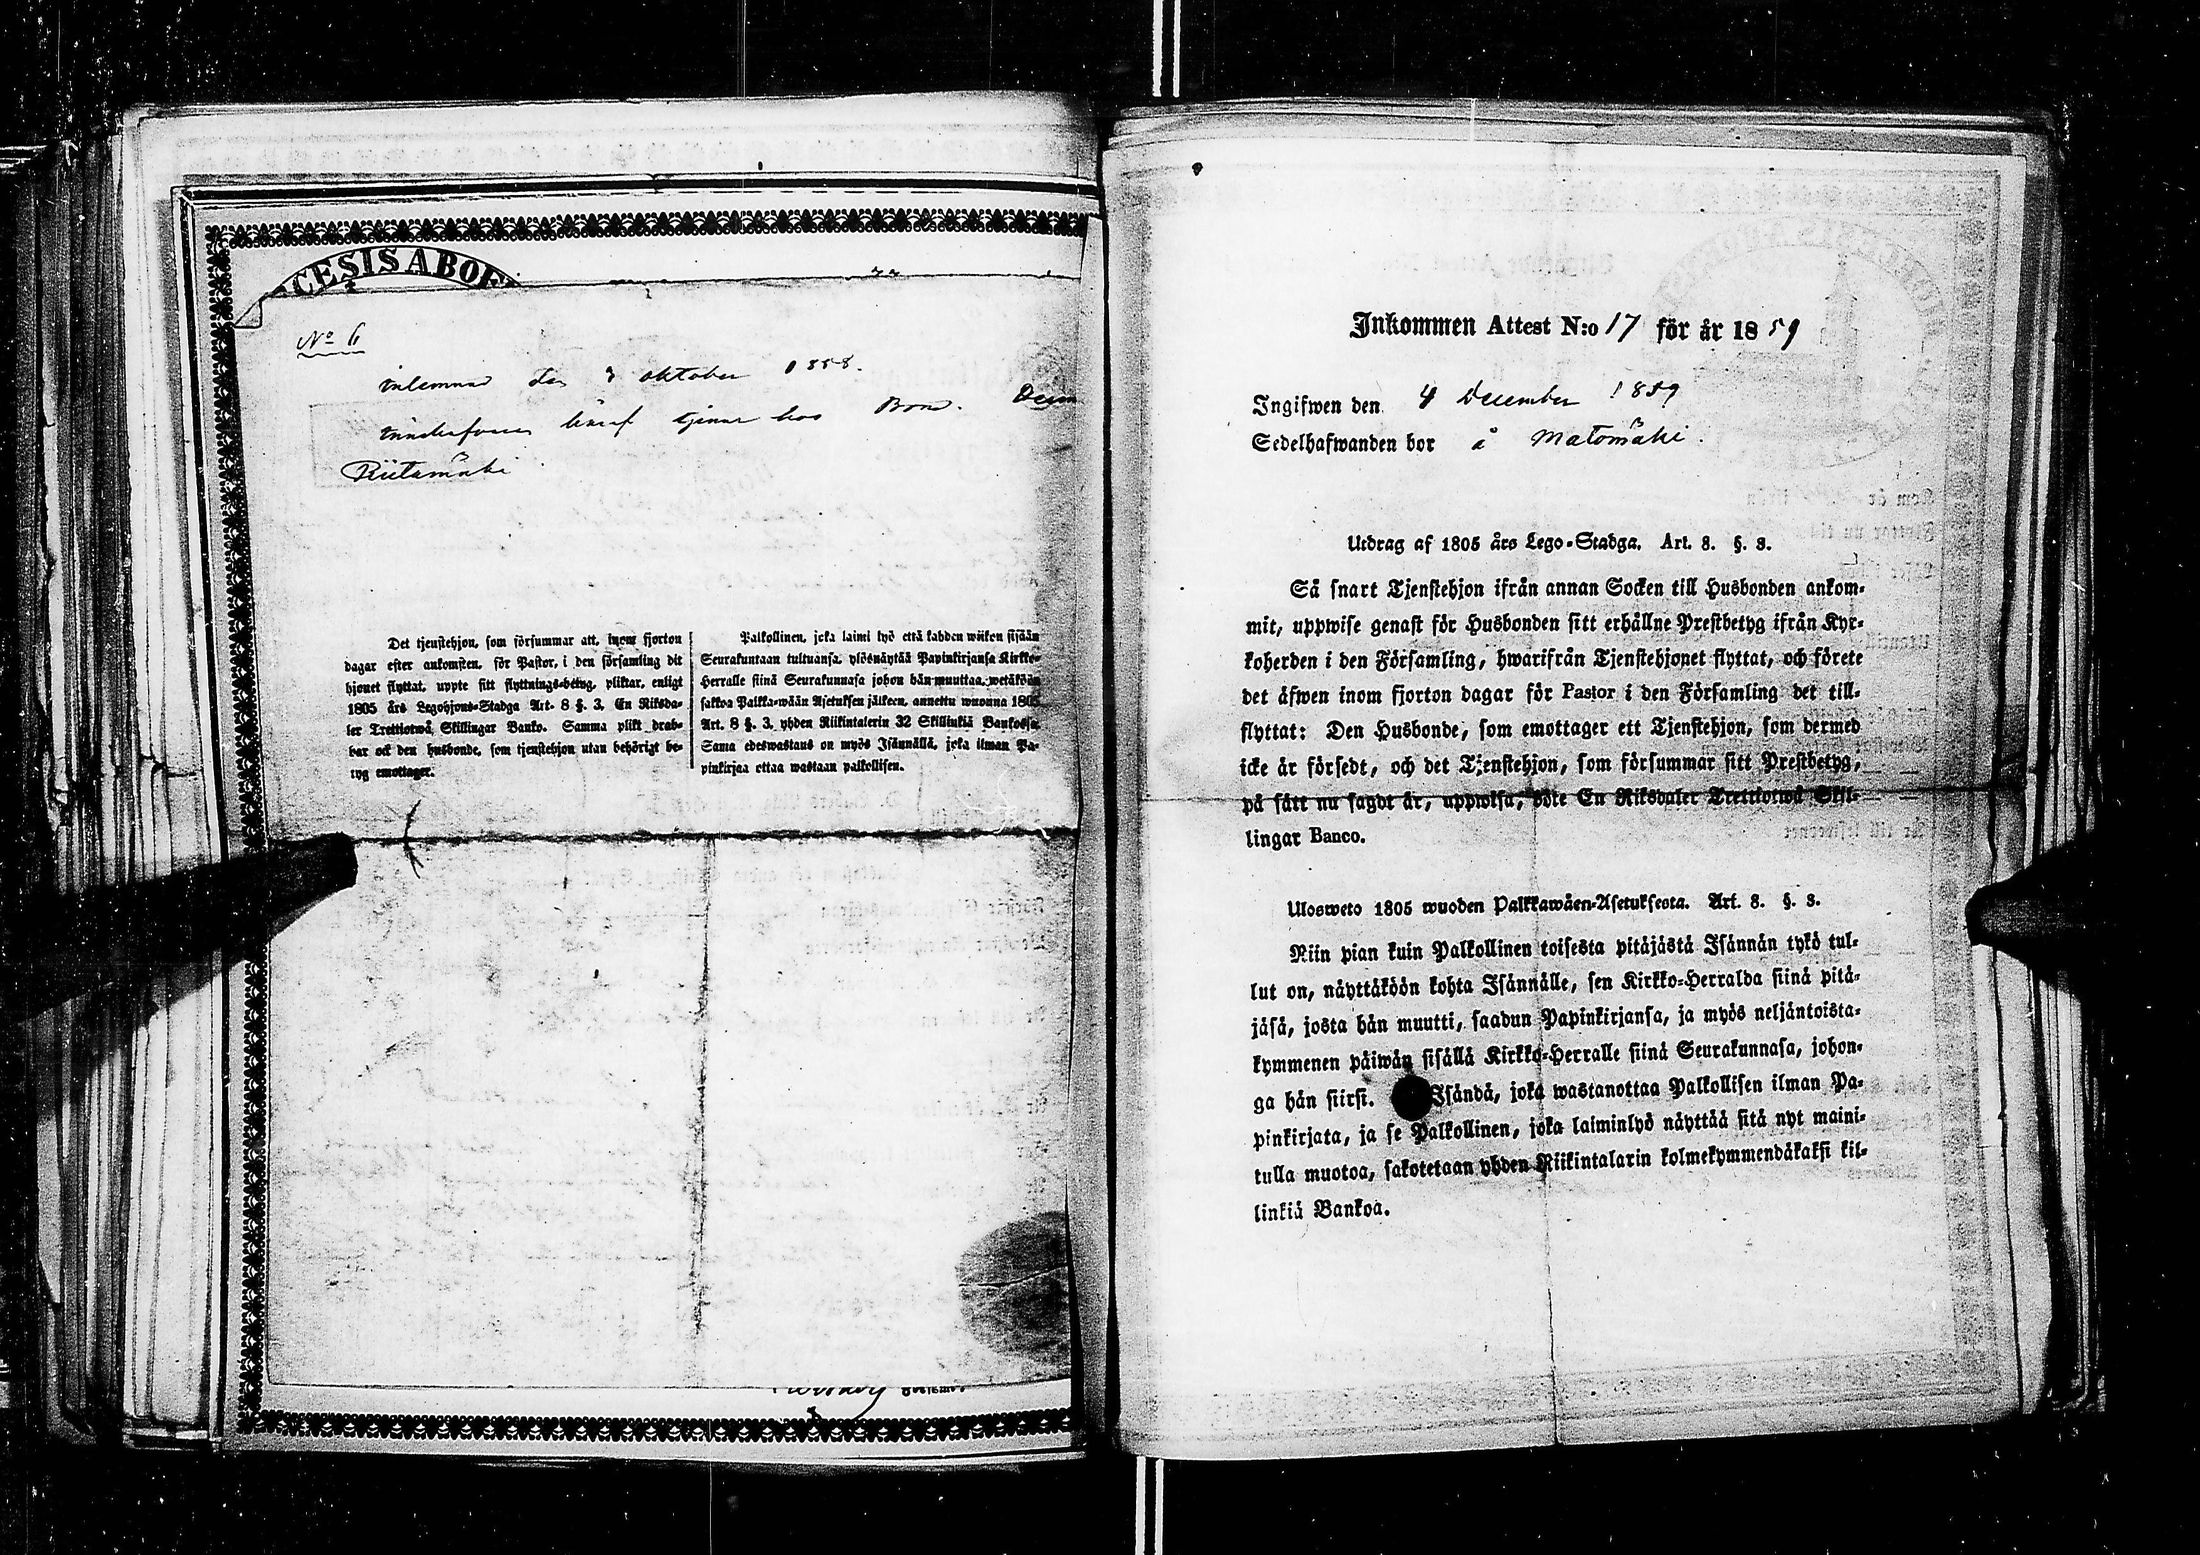 CESIS ABOE
No 6
inlemnad den 3 oktober 1858.
tjenar hos Bond.
Riitamäki
Det tjenstehjon, som försummar att, inom fjorton
dagar efter ankomsten, för Pastor, i den församling dit
hjonet flyttat, uppte sitt flyttnings-betyg, pliktar, enligt
1805 års Legohjons-Stadga Art. 8 §. 3. En Riksda-
ler Trettiotwå Skillingar Banko. Samma plikt drab-
bar ock den husbonde, som tjenstehjon utan behörigt be-
tyg emottager.
Palkollinen, joka laimi lyö että kahden wiikon sisään
Seurakuntaan tultuansa, ylösnäytää Papinkirjansa Kirkko-
Herralle siinä Seurakunnasa johon hän muuttaa, wetäköön
sakkoa Palkka-wään Asetuksen jälkeen, annettu wuonna 1805
Art. 8 §. 3. yhden Riikintalerin 32 Skillinkiä Bankossa.
Sama edeswastaus on myös Isännällä, joka ilman Pa-
pinkirjaa ottaa wastaan palkollisen.
Inkommen Attest N:o 17 för år 1859
Ingifwen den 4 December 1859
Sedelhafwanden bor å Matomäki.
Utdrag af 1805 års Lego-Stadga. Art. 8. §. 3.
Så snart Tjenstehjon ifrån annan Socken till Husbonden ankom-
mit, uppwise genast för Husbonden sitt erhållne Prestbetyg ifrån Kyr-
koherden i den Församling, hwarifrån Tjenstehjonet flyttat, och förete
det äfwen inom fjorton dagar för Pastor i den Församling det till-
flyttat: Den Husbonde, som emottager ett Tjenstehjon, som dermed
icke är försedt, och det Tjenstehjon, som försummar sitt Prestbetyg,
på sätt nu sagdt är, uppwisa, böte En Riksdaler Trettiotwå Skil-
lingar Banco.
Ulosweto 1805 wuoden Palkkawäen-Asetuksesta. Art. 8. §. 3.
Niin pian kuin Palkollinen toisesta pitäjästä Isännän tykö tul-
lut on, näyttäköön kohta Isännälle, sen Kirkko-Herralda siinä pitä-
jäsä, josta hän muutti, saadun Papinkirjansa, ja myös neljäntoista-
kymmenen päiwän sisällä Kirkko-Herralle siinä Seurakunnasa, johon-
ga hän siirsi. Isändä, joka wastanottaa Palkollisen ilman Pa-
pinkirjata, ja se Palkollinen, joka laiminlyö näyttää sitä nyt maini-
tulla muotoa, sakotetaan yhden Riikintalarin kolmekymmendäkaksi kil-
linkiä Bankoa.